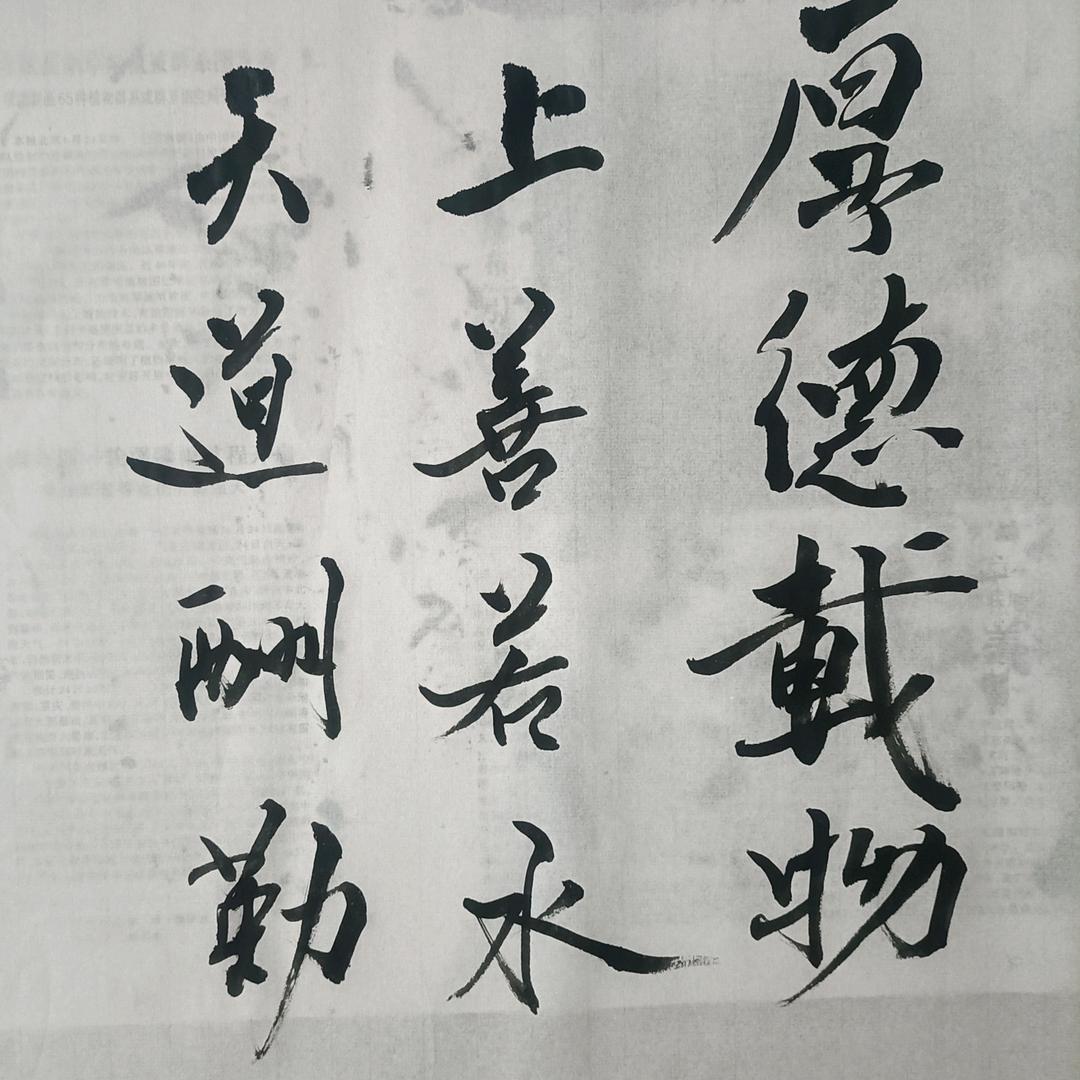 厚德載物
上善若水
天道酬勤